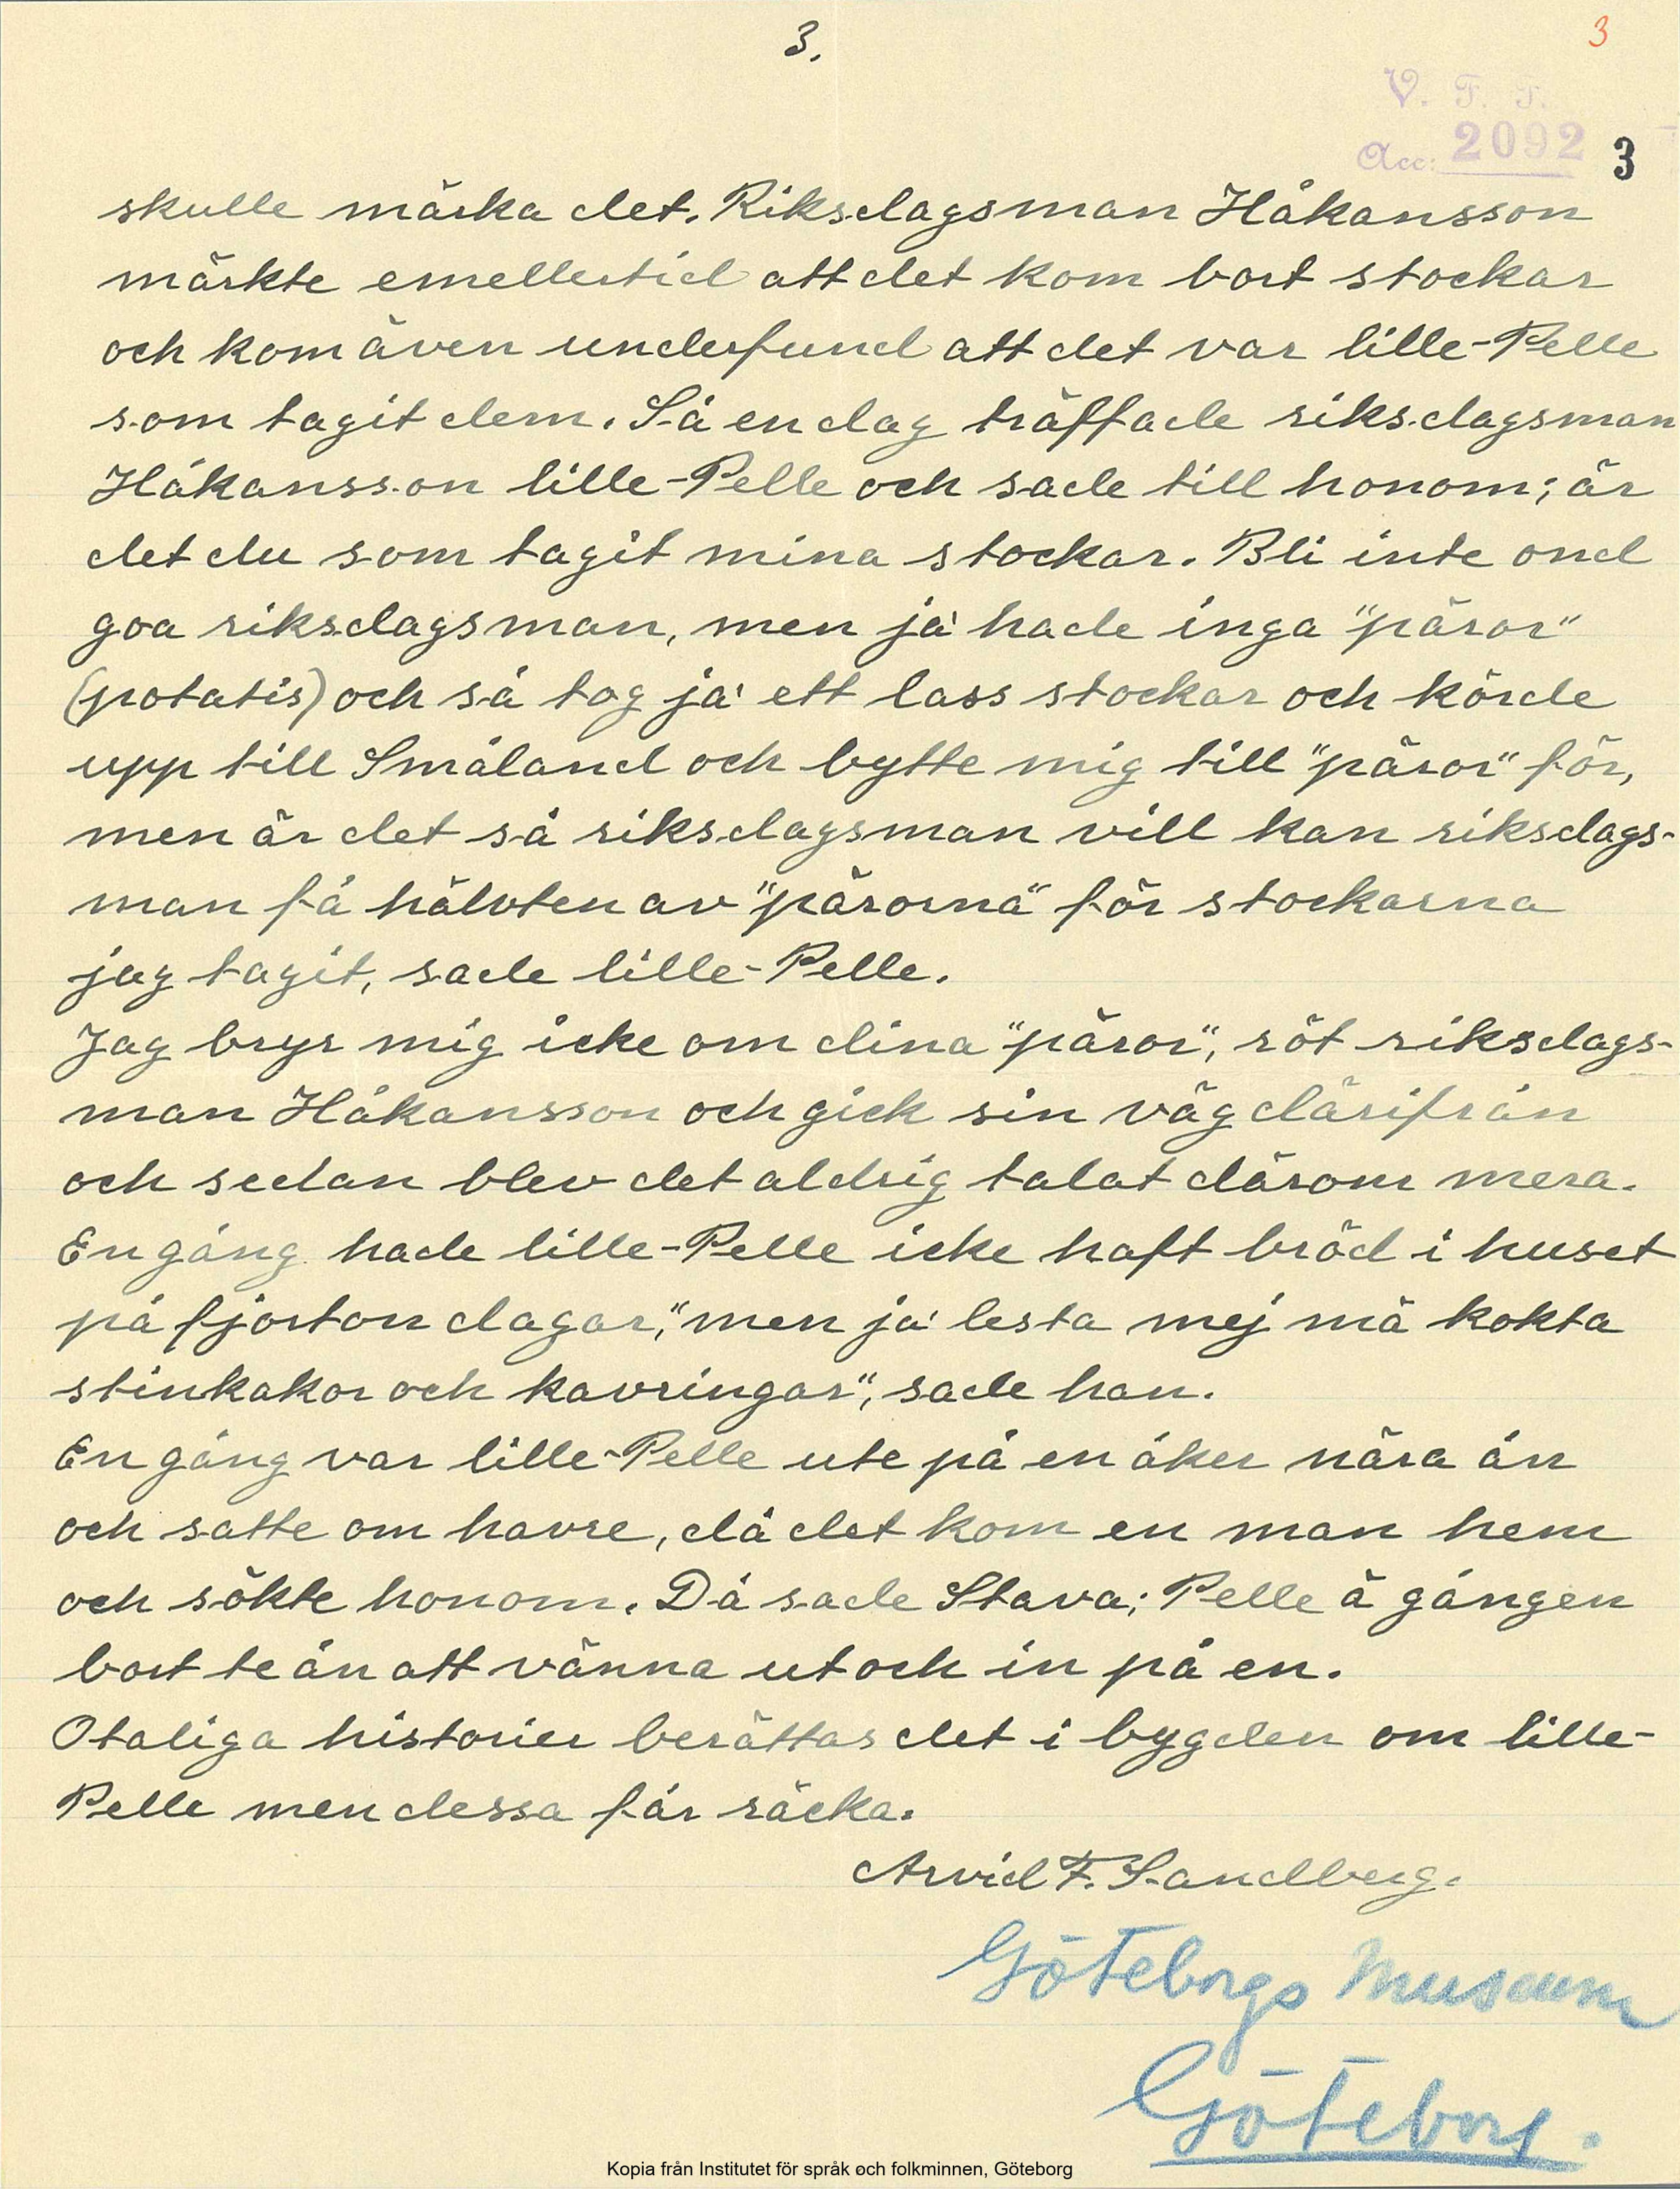 3.
3
V. F. T.
Acc: 2092 3
skulle märka det. Riksdagsman Håkansson
märkte emellertid att det kom bort stockar
och kom även underfund att det var lille-Pelle
som tagit dem. Så en dag träffade riksdagsman
Håkansson lille-Pelle och sade till honom; är
det du som tagit mina stockar. Bli inte ond
goa riksdagsman, men ja' hade inga "päror"
(potatis) och så tog ja' ett lass stockar och körde
upp till Småland och bytte mig till "päror" för,
men är det så riksdagsman vill kan riksdags-
man få hälvten av "pärorna" för stockarna
jag tagit, sade lille-Pelle.
Jag bryr mig icke om dina "päror", röt riksdags-
man Håkansson och gick sin väg därifrån
och sedan blev det aldrig talat därom mera.
En gång hade lille-Pelle icke haft bröd i huset
på fjorton dagar, "men ja' lesta mej mä kokta
stinkakor och kavringar", sade han.
En gång var lille-Pelle ute på en åker nära ån
och satte om havre, då det kom en man hem
och sökte honom. Då sade Stava; Pelle ä gången
bort te ån att vänna ut och in på en.
Otaliga historier berättas det i bygden om lille-
Pelle men dessa får räcka.
Arvid F. Sandberg.
Göteborgs Museum
Göteborg.
Kopia från Institutet för språk och folkminnen, Göteborg